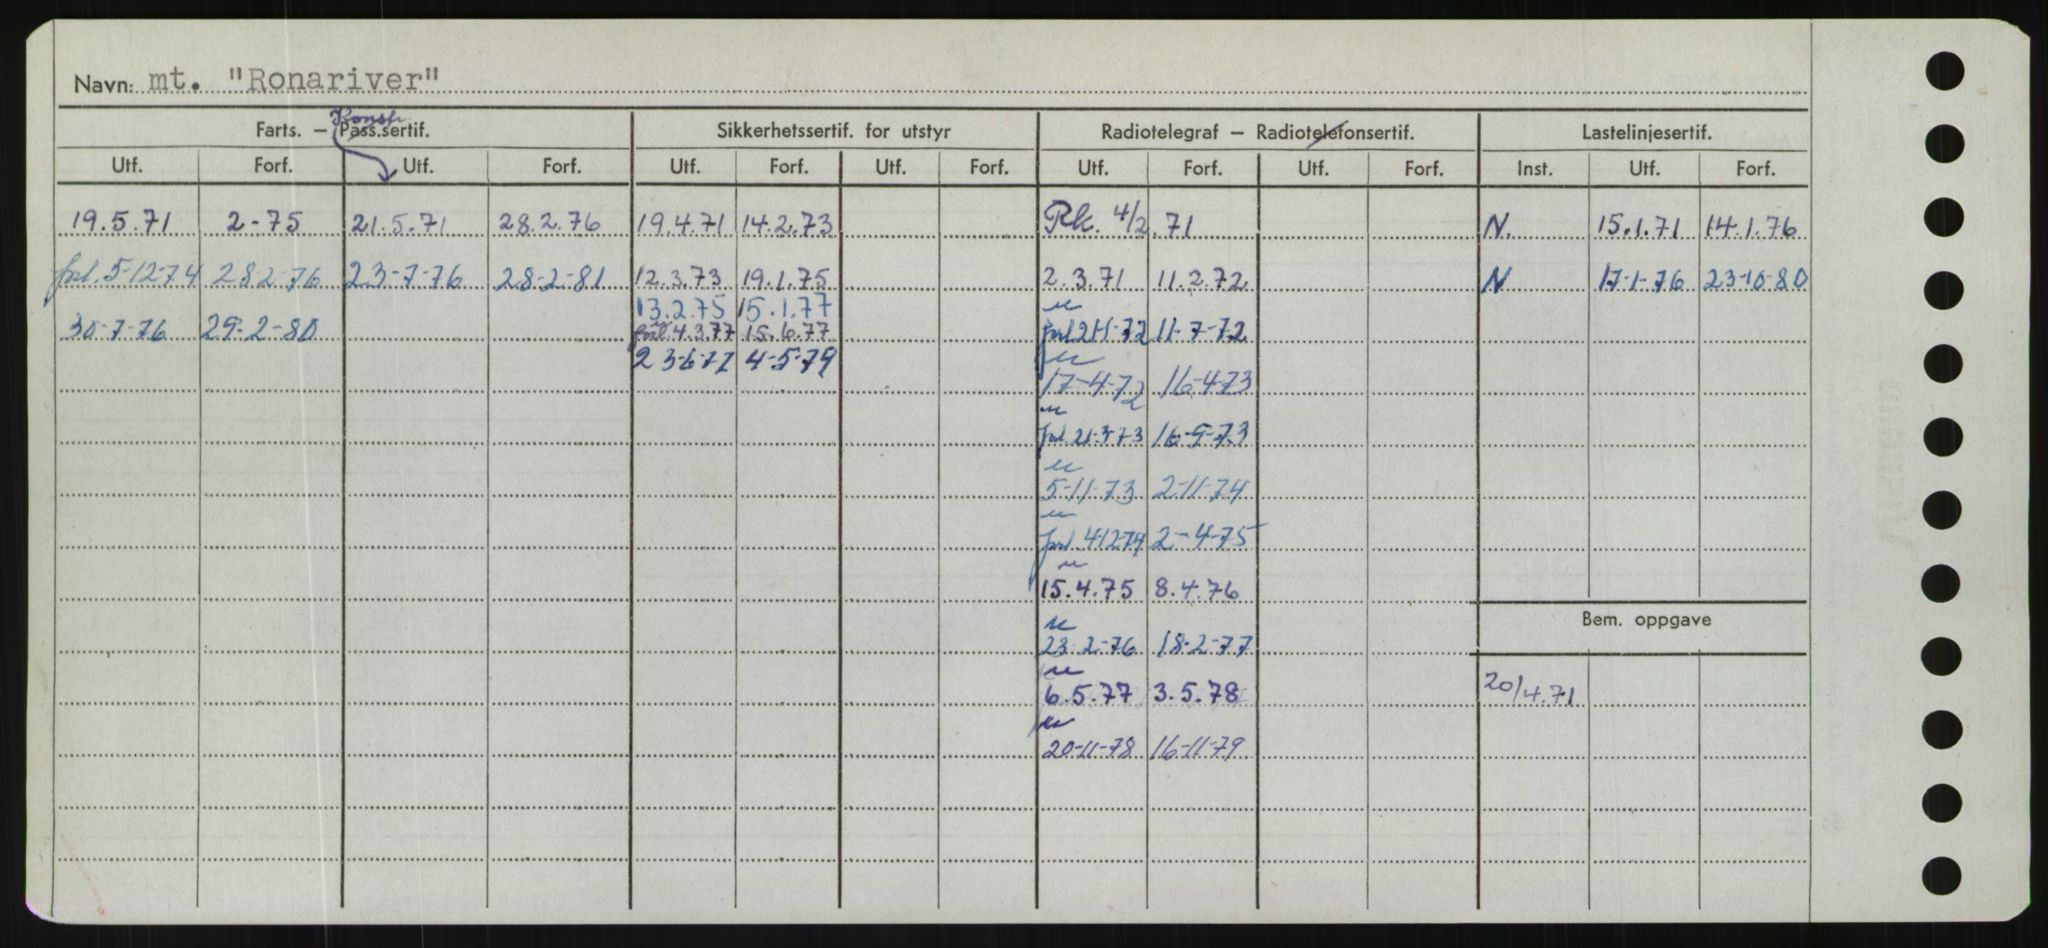 Navn: mt. "Ronariver"
Konstr.
Farts. – Pass.sertif. Sikkerhetssertif. for utstyr Radiotelegraf – Radiotelefonsertif. Lastelinjesertif.
Utf. Forf. Utf. Forf. Utf. Forf. Utf. Forf. Utf. Forf. Utf. Forf. Inst. Utf. Forf.
19.5.71 2-75 21.5.71 28.2.76 19.4.71 14.2.73 Rk. 4/2.71 N. 15.1.71 14.1.76
forl. 5-12-74 28-2-76 23-7-76 28-2-81 12.3.73 19.1.75 2.3.71 11.2.72 N 17-1-76 23-10-80
13.2.75 15.1.77
30-7-76 29-2-80 forl. 4.3.77 15.6.77 forl 21-1-72 11-7-72
23-6-77 4-5-79
17-4-72 16-4-73
forl. 21-3-73 16-9-73
5-11-73 2-11-74
forl. 4-12-74 2-4-75
15.4.75 8.4.76
Bem. oppgave
23-2-76 18-2-77
6.5.77 3.5.78 20/4.71
20-11-78 16-11-79